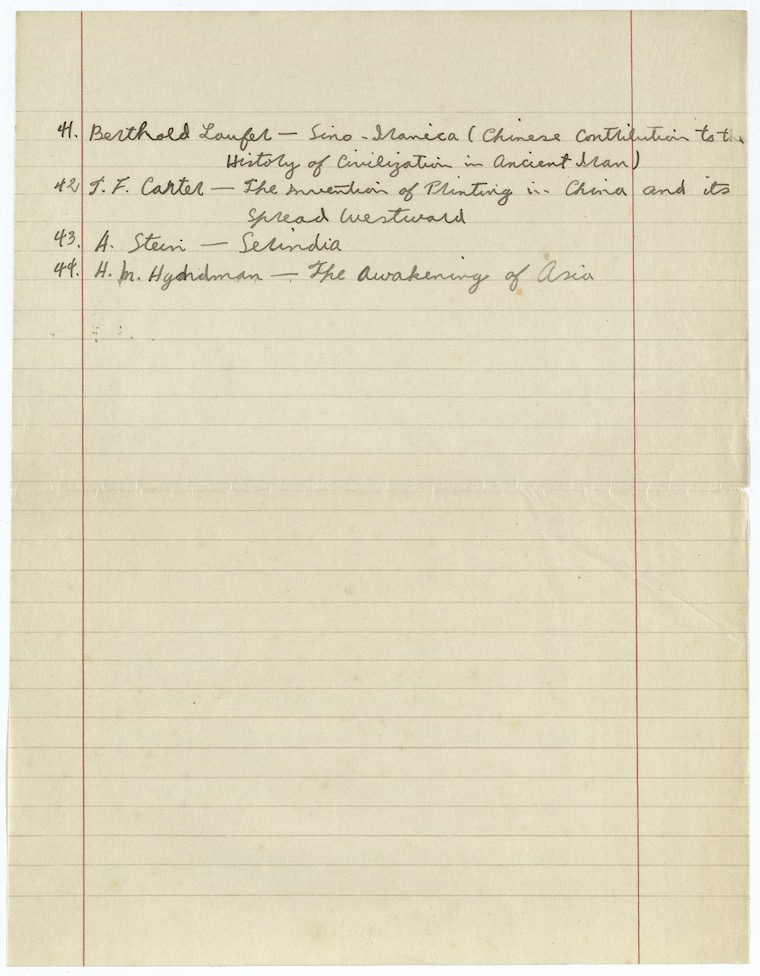 41. Berthold Laufer — Sino-Iranica (Chinese Contribution to the
History of Civilization in Ancient Iran)
42 T. F. Carter — The Invention of Printing in China and its
Spread Westward
43. A. Stein — Serindia
44. H. M. Hyndman — The Awakening of Asia